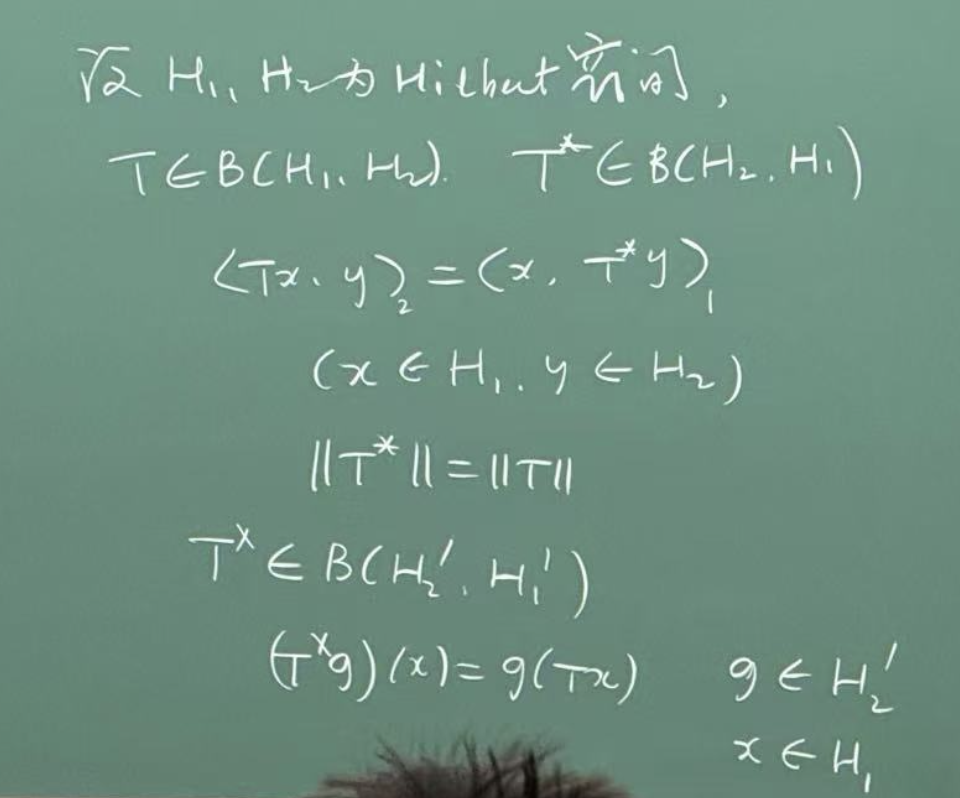 设 H₁, H₂为 Hilbert 空间,
T∈B(H₁, H₂). T*∈B(H₂, H₁)
⟨Tx, y⟩₂ = ⟨x, T*y⟩₁
(x ∈ H₁, y ∈ H₂)
‖T*‖=‖T‖
T^× ∈ B(H₂′, H₁′)
(T^×g)(x)= g(Tx) g ∈ H₂′
x ∈ H₁